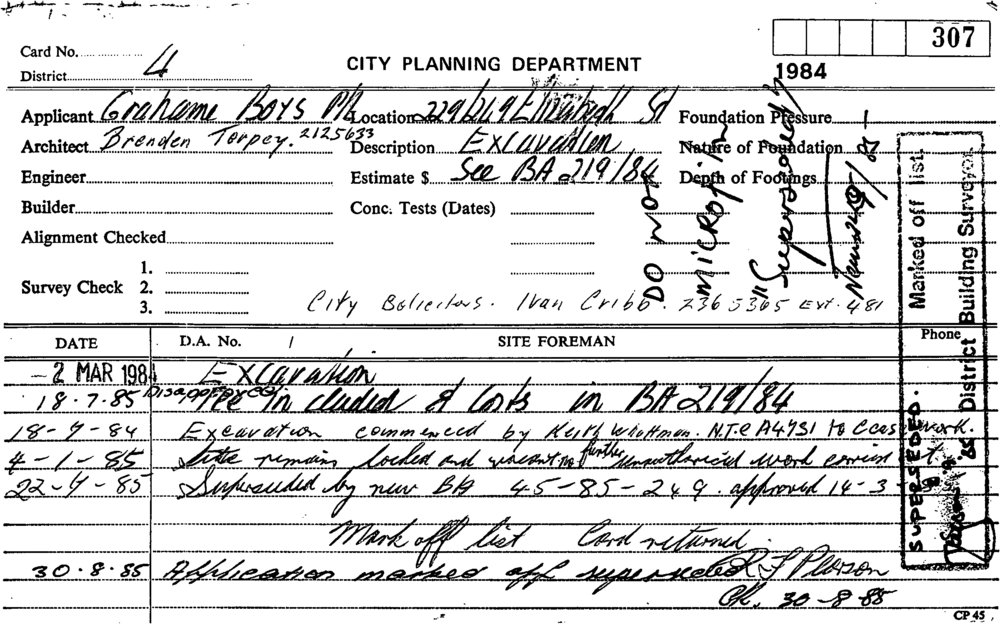 307
Card No. 4
District
CITY PLANNING DEPARTMENT
1984
Applicant Grahame Boys P/L
Location 229/249 Elizabeth St
Foundation Pressure
Architect Brenden Torpey. 2125633
Description Excavation
Nature of Foundation
Engineer
Estimate $ See BA 219/84
Depth of Footings
Builder
Conc. Tests (Dates)
Alignment Checked
1.
Survey Check 2.
3.
City Solicitors. Ivan Cribb. 2365365 Ext. 481
DO NOT
MICROFILM
"Superseded"
Marked off list.
District Building Surveyor
SUPERSEDED.
DATE D.A. No. / SITE FOREMAN Phone
- 2 MAR 1984 Excavation
18.7.85 Disapproved Fee Included & Costs in BA 219/84
18-9-84 Excavation commenced by Keith Whattman. N.T.C A4731 to Ceas work.
4-1-85 Site remains locked and vacant. no further unauthorised work carried out.
22-4-85 Superseded by new BA 45-85-249. approved 14-3-
Mark off list Card returned.
30.8.85 Application marked off superseded R J Pearson
Ok. 30-8-85
CP 45